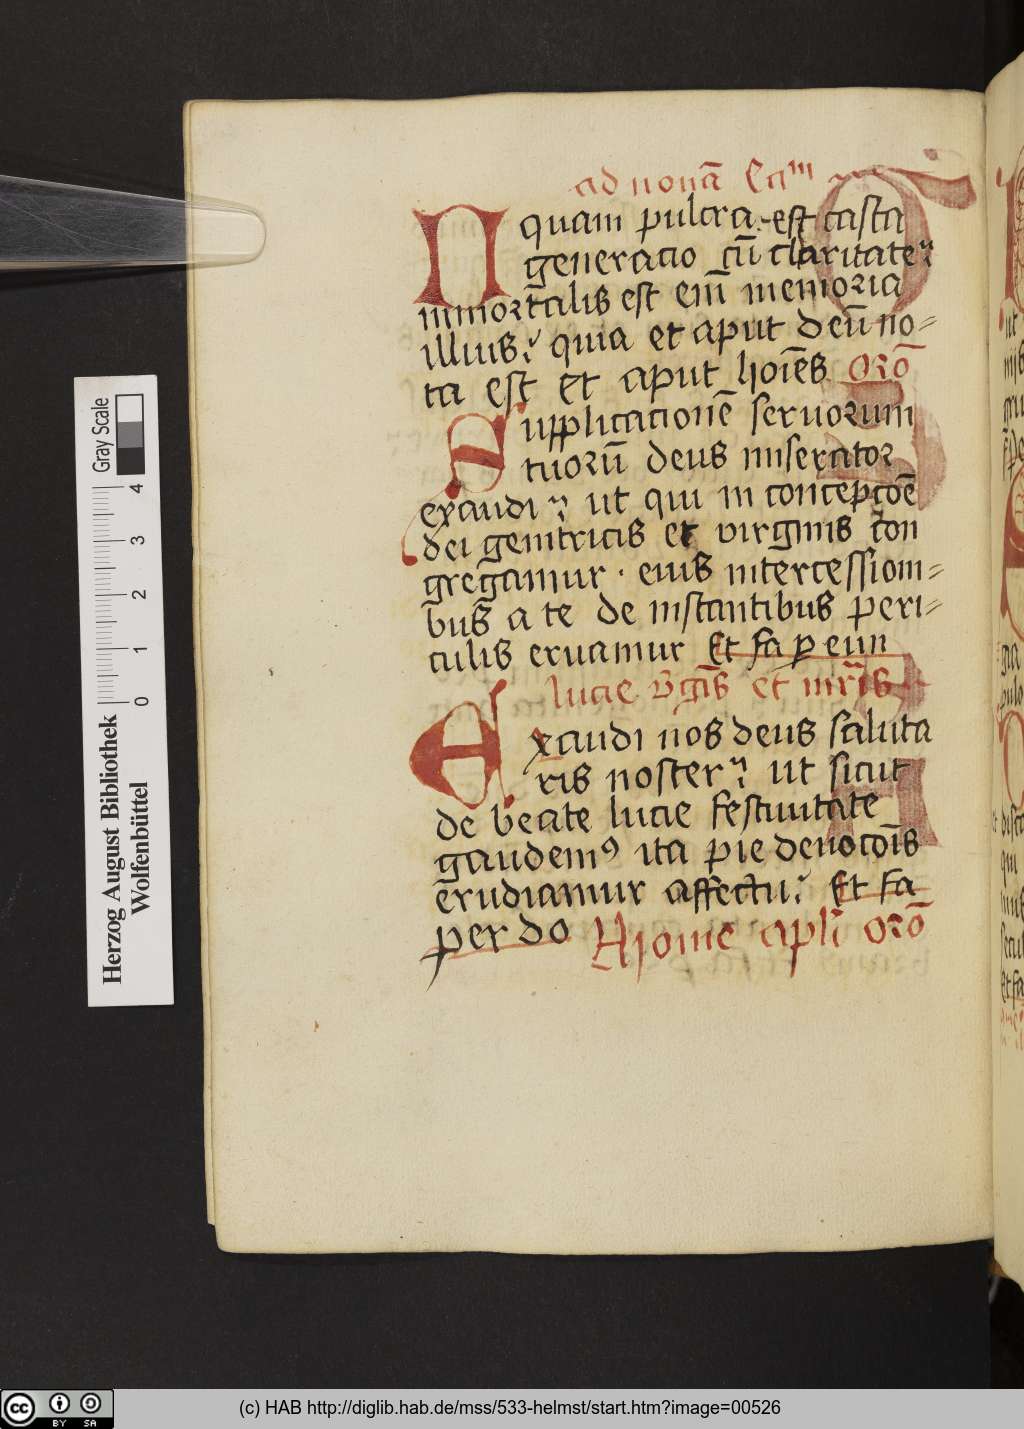 ad nonā Cam
O quam pulcra est casta
generacio cū claritate
inmortalis est em̄ memoria
illius quia et aput deū no⸗
ta est et aput hoīes orō
Supplicacionē seruorum
tuorū deus miserator
exaudi ut qui in concepcōē
dei genitricis et virginis con
gregamur · eius intercessioni⸗
bus a te de instantibus peri⸗
culis eruamur Et fa p eun
lucie v̄gīs et mr̄is
Exaudi nos deus saluta
ris noster ut sicut
de beate lucie festiuitate
gaudemꝯ ita pie deuocōīs
erudiamur affectu Et fa
per do Thome apli orō
Gray Scale
0 1 2 3 4
Herzog August Bibliothek
Wolfenbüttel
cc BY SA
(c) HAB http://diglib.hab.de/mss/533-helmst/start.htm?image=00526